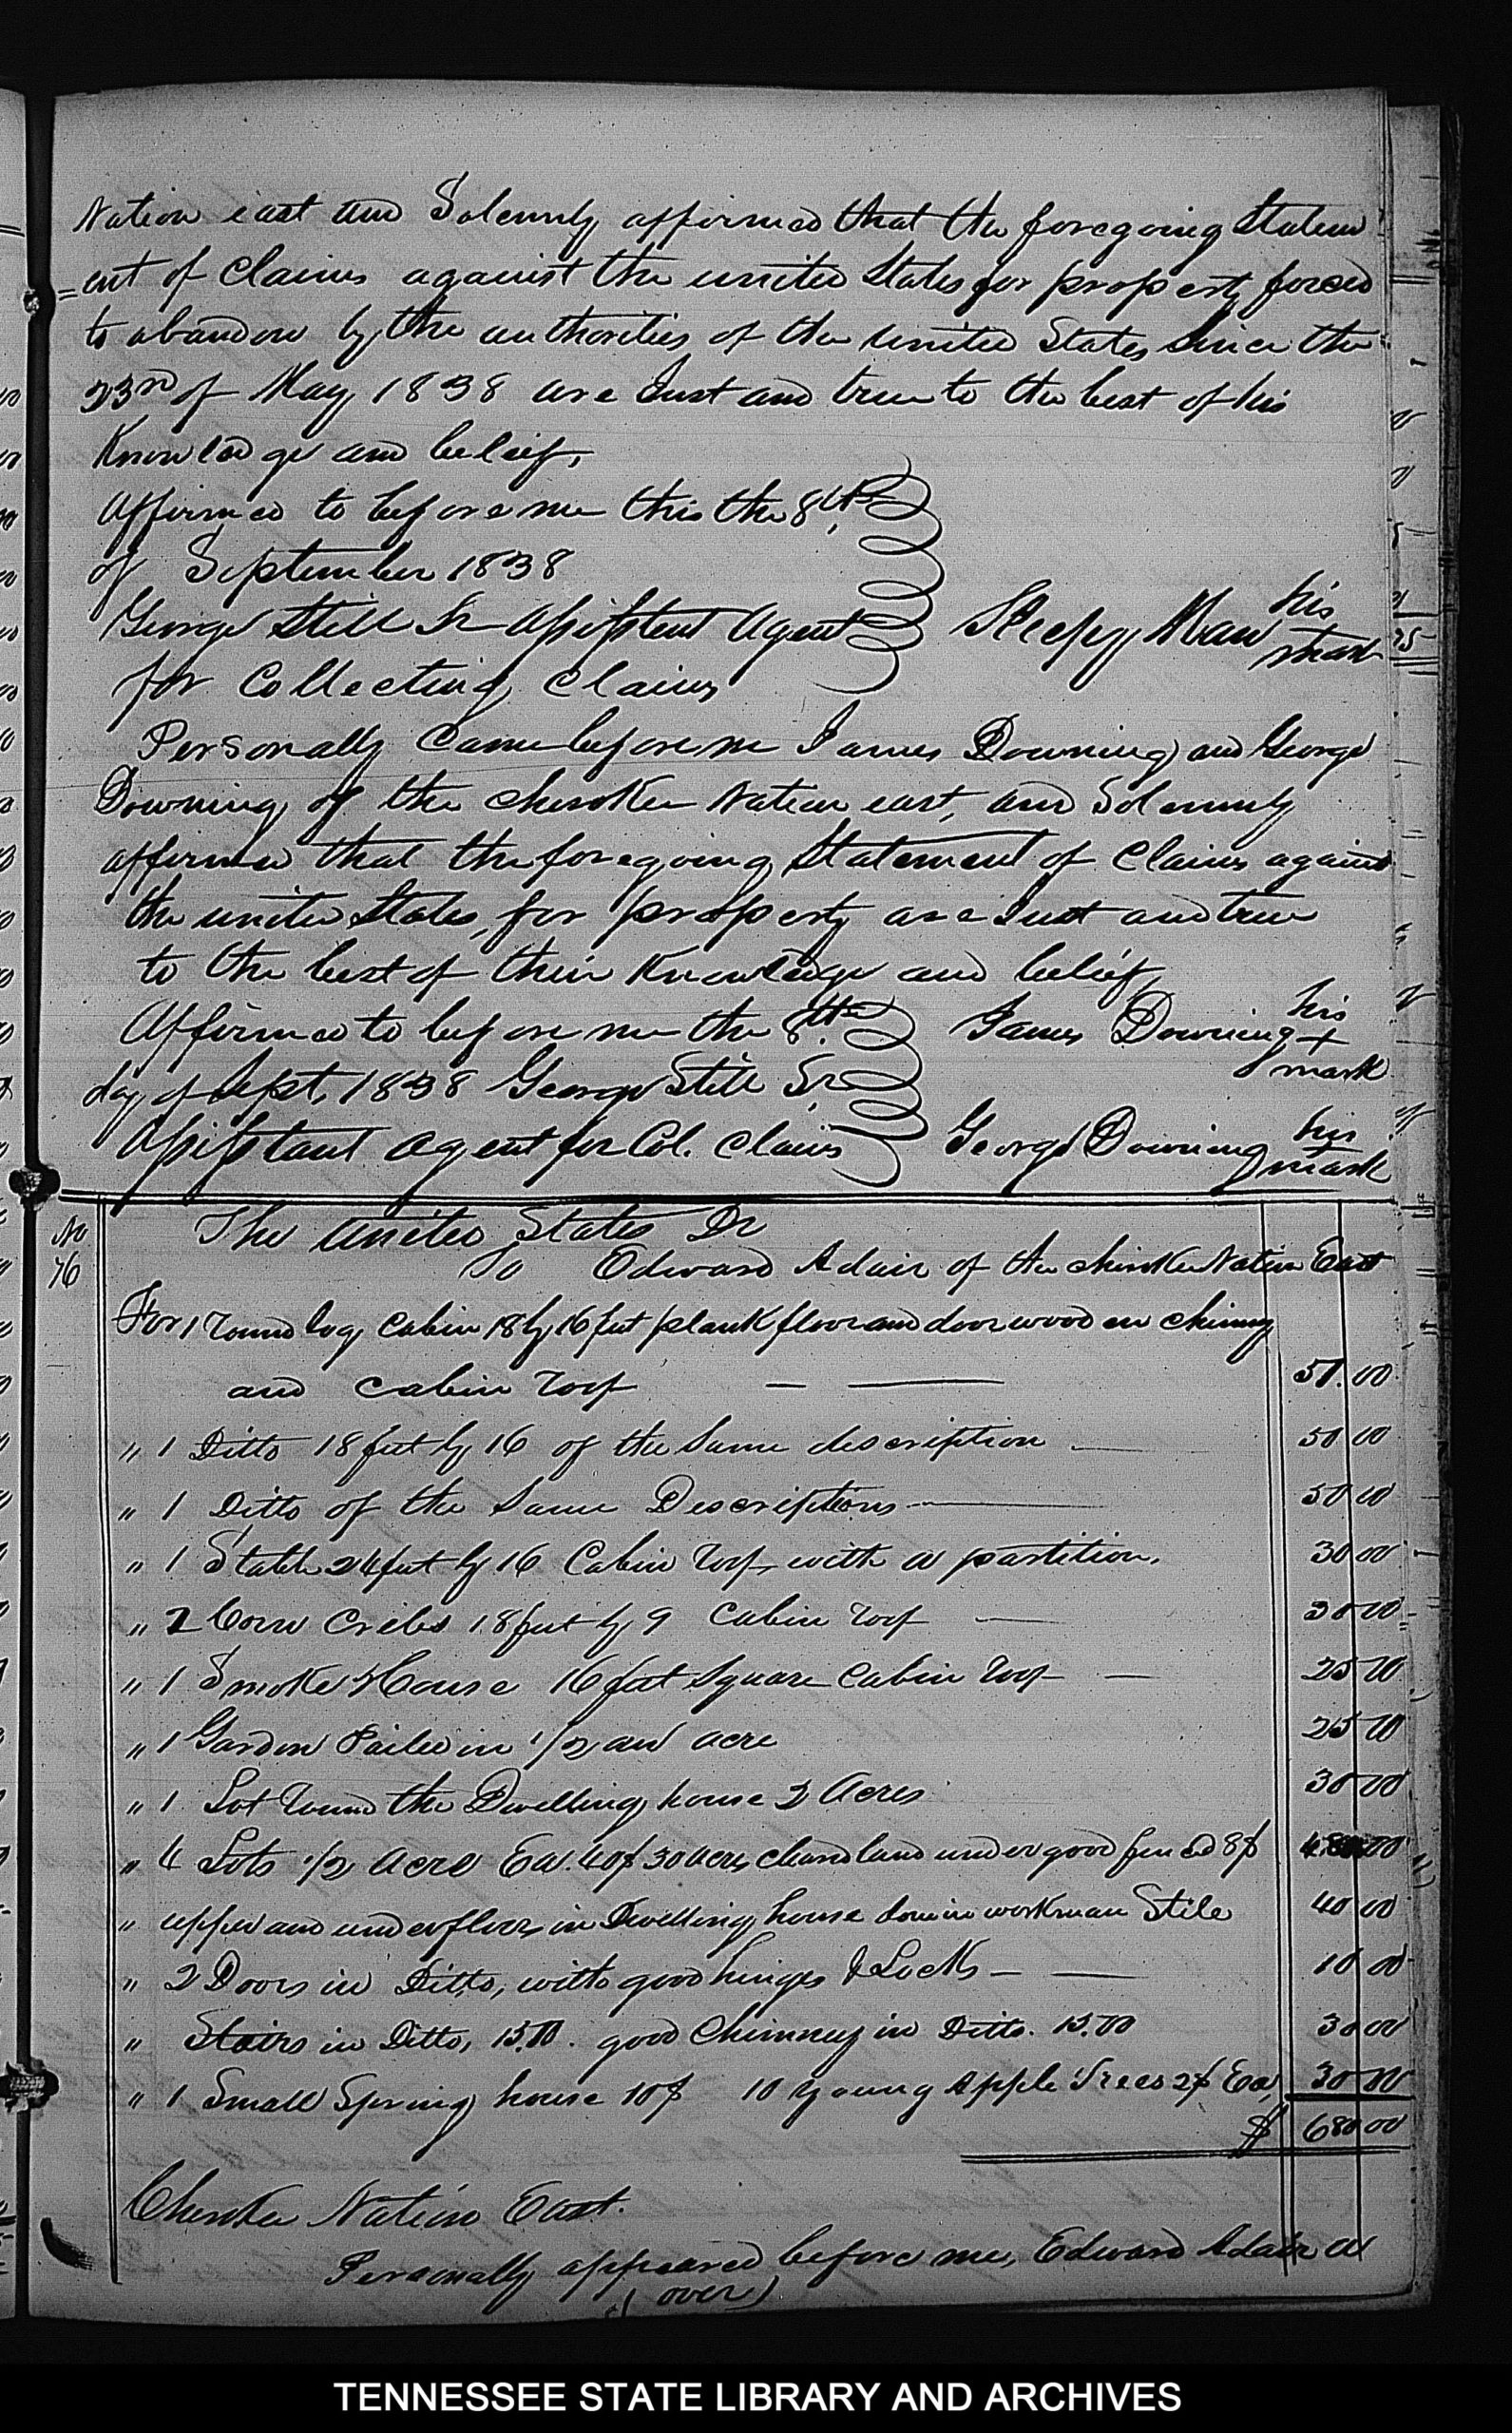 Nation east and Solemnly affirmed that the foregoing Statem
=ent of Claims against the united States for property forced
to abandon by the authorities of the united States Since the
23rd of May 1838 are Just and true to the best of his
Knowledge and belief,
Affirmed to before me this the 8th
of September 1838
George Still Sr Assistant Agent Sleepy Man his mark
for Collecting Claims
Personally Came before me James Downing and George
Downing of the cherokee Nation east, and Solemnly
affirmed that the foregoing Statement of Claims against
the united States, for property are Just and true
to the best of their Knowledge and belief,
Affirmed to before me the 8th James Downing his + mark
day of Sept, 1838 George Still Sr
Assistant agent for Col. Claims George Downing his mark
No 76 The United States Dr
To Edward Adair of the cherokee Nation East
For 1 round log Cabin 18 by 16 feet plank floor and door wooden chimny
and cabin roof 50.00
" 1 Ditto 18 feet by 16 of the Same description 50 00
" 1 Ditto of the Same Descriptions 50 00
" 1 Stable 24 feet by 16 Cabin roof, with a partition, 30 00
" 2 Corn Cribs 18 feet by 9 Cabin roof 30 00
" 1 Smoke House 16 feet Square Cabin roof 25 00
" 1 Garden Pailed in 1/2 an acre 25 00
" 1 Lot round the Dwelling house 2 Acres 30 00
" 4 Lots 1/2 Acre Ea. 40$ 30 acres cleared land under good fenced 8$ 00
" upper and under floors in Dwelling house done in workman Stile 40 00
" 2 Doors in Ditto, with good hinges & Locks 10 00
" Stairs in Ditto, 15.00. good Chimney in Ditto. 15.00 30 00
" 1 Small Spring house 10$ 10 young Apple Trees 2$ Ea, 30 00
$ 680 00
Cherokee Nation East.
Personally appeared before me, Edward Adair a
(over)
TENNESSEE STATE LIBRARY AND ARCHIVES